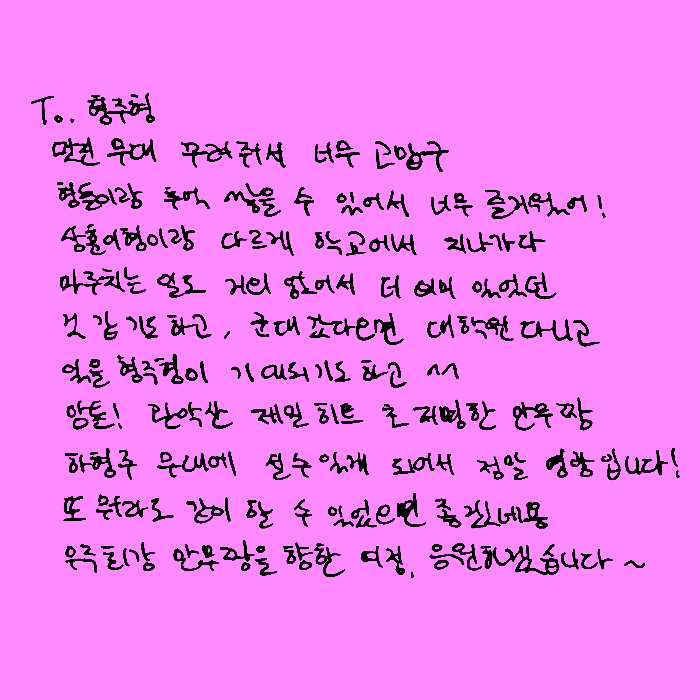 To. 형주형
멋진 무대 꾸려줘서 너무 고맙구
형들이랑 추억 쌓을 수 있어서 너무 즐거웠어!
상훈이형이랑 다르게 학교에서 지나가다
마주치는 일도 거의 없어서 더 의미 있었던
것 같기도하고, 군대 갔다오면 대학원 다니고
있을 형주형이 기대되기도하고 ^^
암튼! 관악산 제일히트 초 저명한 안무짱
하형주 무대에 설수있게 되어서 정말 영광입니다!
또 뭐라도 같이 할 수 있었으면 좋겠네용
우주최강 안무짱을 향한 여정, 응원하겠습니다 ~